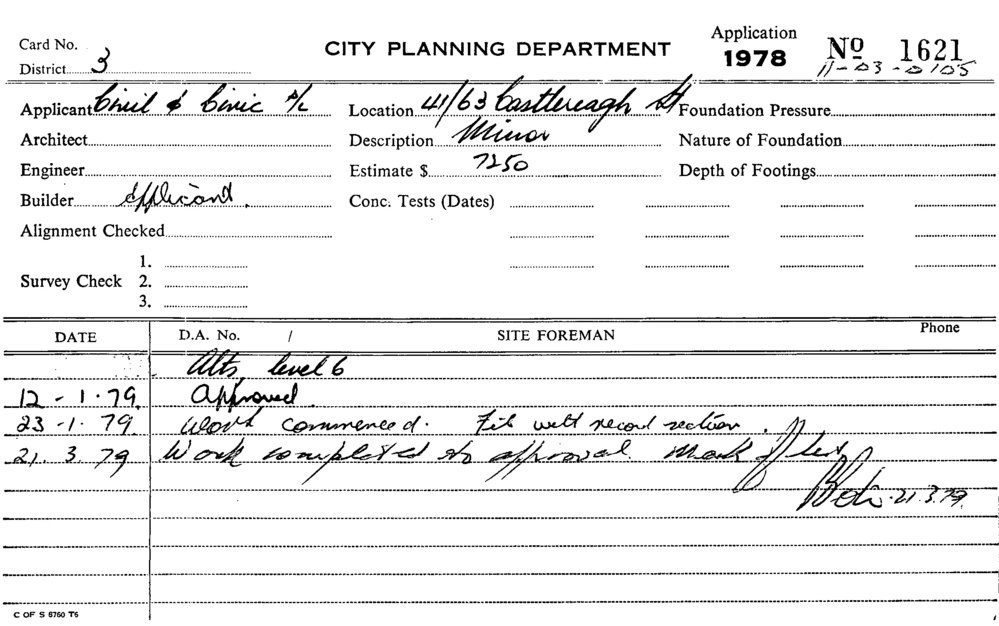 Card No. CITY PLANNING DEPARTMENT Application 1978 No 1621
District 3 11-03-0105
Applicant Civil & Civic P/L Location 41/63 Castlereagh St Foundation Pressure
Architect Description Minor Nature of Foundation
Engineer Estimate $ 7250 Depth of Footings
Builder Applicant. Conc. Tests (Dates)
Alignment Checked
1.
Survey Check 2.
3.
DATE D.A. No. / SITE FOREMAN Phone
Alts level 6
12-1.79. Approved
23-1.79. Work commenced. File with record section.
21.3.79 Work completed to approval. Mark off
21.3.79.
C OF S 6760 T6